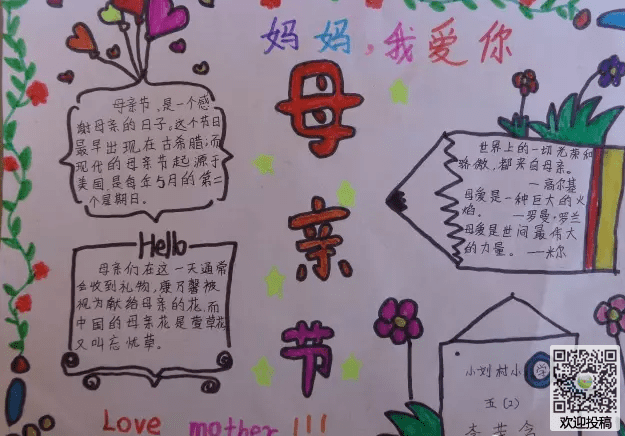 妈妈，我爱你
母亲节
母亲节，是一个感
谢母亲的日子，这个节日
最早出现在古希腊；而
现代的母亲节起源于
美国，是每年5月的第二
个星期日。
Hello
母亲们在这一天通常
会收到礼物，康乃馨被
视为献给母亲的花，而
中国的母亲花是萱草花
又叫忘忧草。
世界上的一切光荣和
骄傲，都来自母亲。
—高尔基
母爱是一种巨大的火
焰。 —罗曼·罗兰
母爱是世间最伟大
的力量。 —米尔
小刘村小学
五（2）
Love mother!!!
欢迎投稿